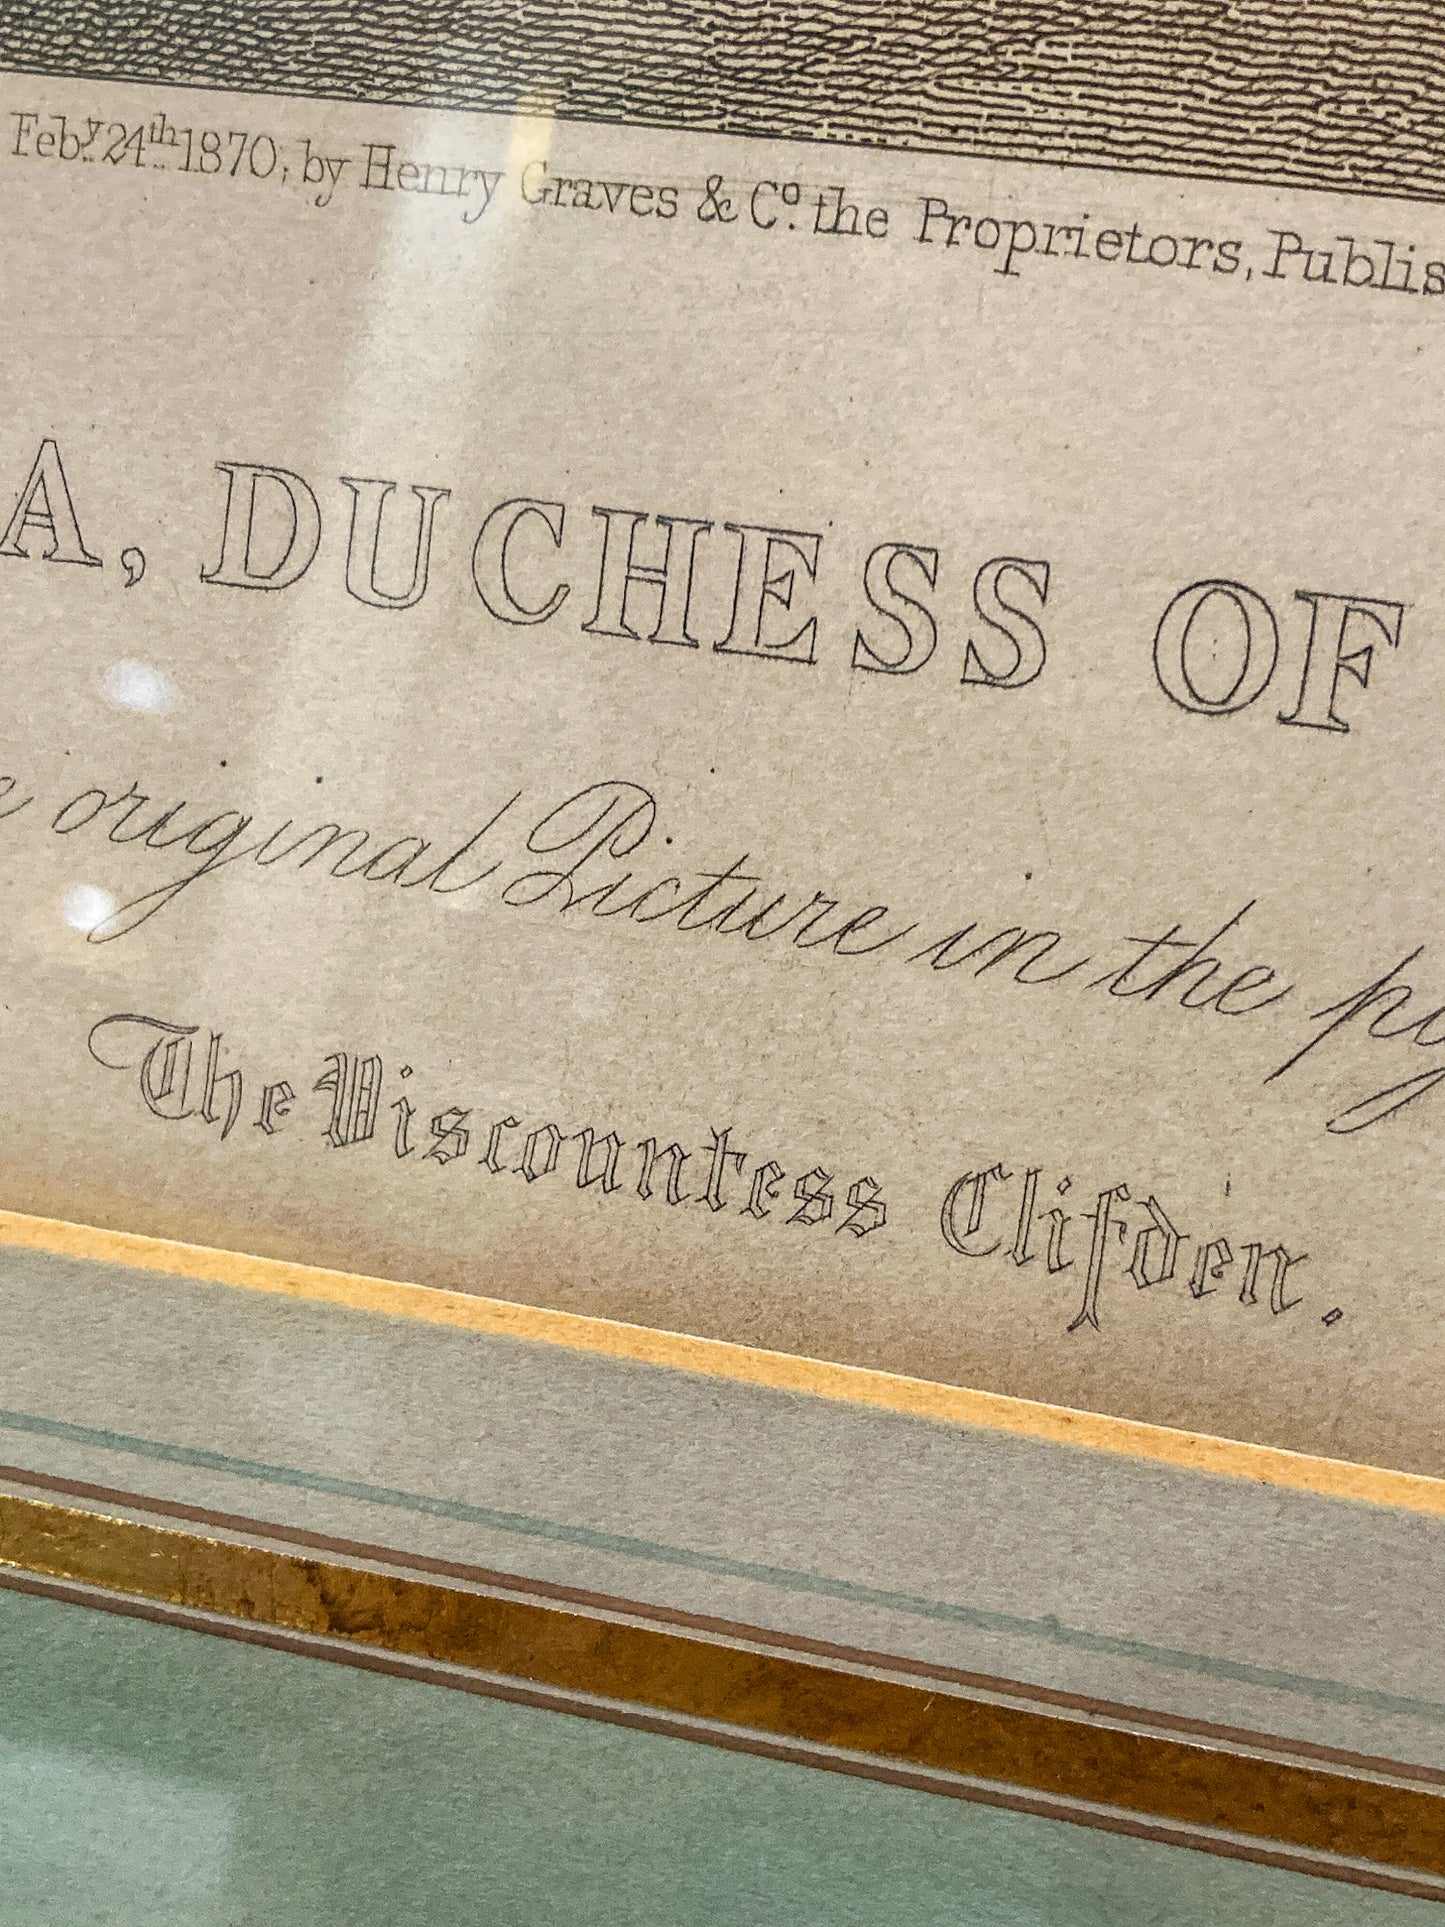 Feby. 24th 1870, by Henry Graves & Co. the Proprietors, Publis
A, DUCHESS OF
e original Picture in the
The Viscountess Clifden.